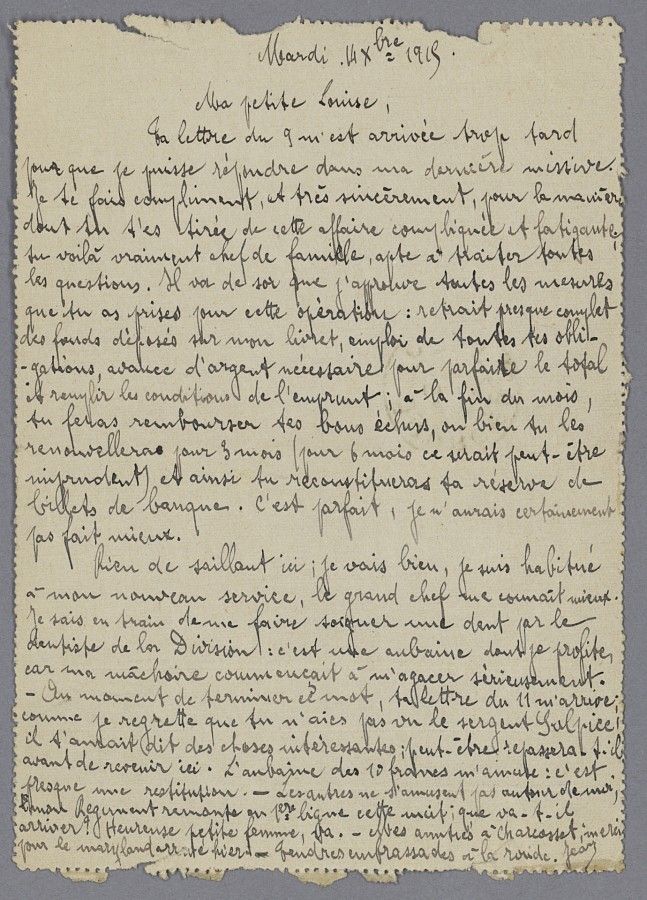 Mardi. 14 Xbre 1915.
Ma petite Louise,
Ta lettre du 9 m'est arrivée trop tard
pour que je puisse répondre dans ma dernière missive.
Je te fais compliment, et très sincèrement, pour la manière
dont tu t'es tirée de cette affaire compliquée et fatigante,
tu voilà vraiment chef de famille, apte à traiter toutes
les questions. Il va de soi que j'approuve toutes les mesures
que tu as prises pour cette opération : retrait presque complet
des fonds déposés sur mon livret, emploi de toutes tes obli-
-gations, avance d'argent nécessaire pour parfaire le total
et remplir les conditions de l'emprunt ; à la fin du mois,
tu feras rembourser tes bons échus, ou bien tu les
renouvelleras pour 3 mois (pour 6 mois ce serait peut-être
imprudent) et ainsi tu reconstitueras ta réserve de
billets de banque. C'est parfait, je n'aurais certainement
pas fait mieux.
Rien de saillant ici ; je vais bien, je suis habitué
à mon nouveau service, le grand chef me connaît mieux.
Je suis en train de me faire soigner une dent par le
dentiste de la Division : c'est une aubaine dont je profite,
car ma mâchoire commençait à m'agacer sérieusement.
- Au moment de terminer ce mot, ta lettre du 11 m'arrive ;
comme je regrette que tu n'aies pas vu le sergent Sulpice !
il t'aurait dit des choses intéressantes ; peut-être repassera-t-il
avant de revenir ici. L'aubaine des 10 francs m'amuse : c'est
presque une restitution. - Les autres ne s'amusent pas autour de moi,
mon Régiment remonte en 1ère ligne cette nuit ; que va-t-il
arriver ? Heureuse petite femme, va. - Mes amitiés à Charcosset, merci
pour le maryland arrivé hier. - Tendres embrassades à la ronde. Jean